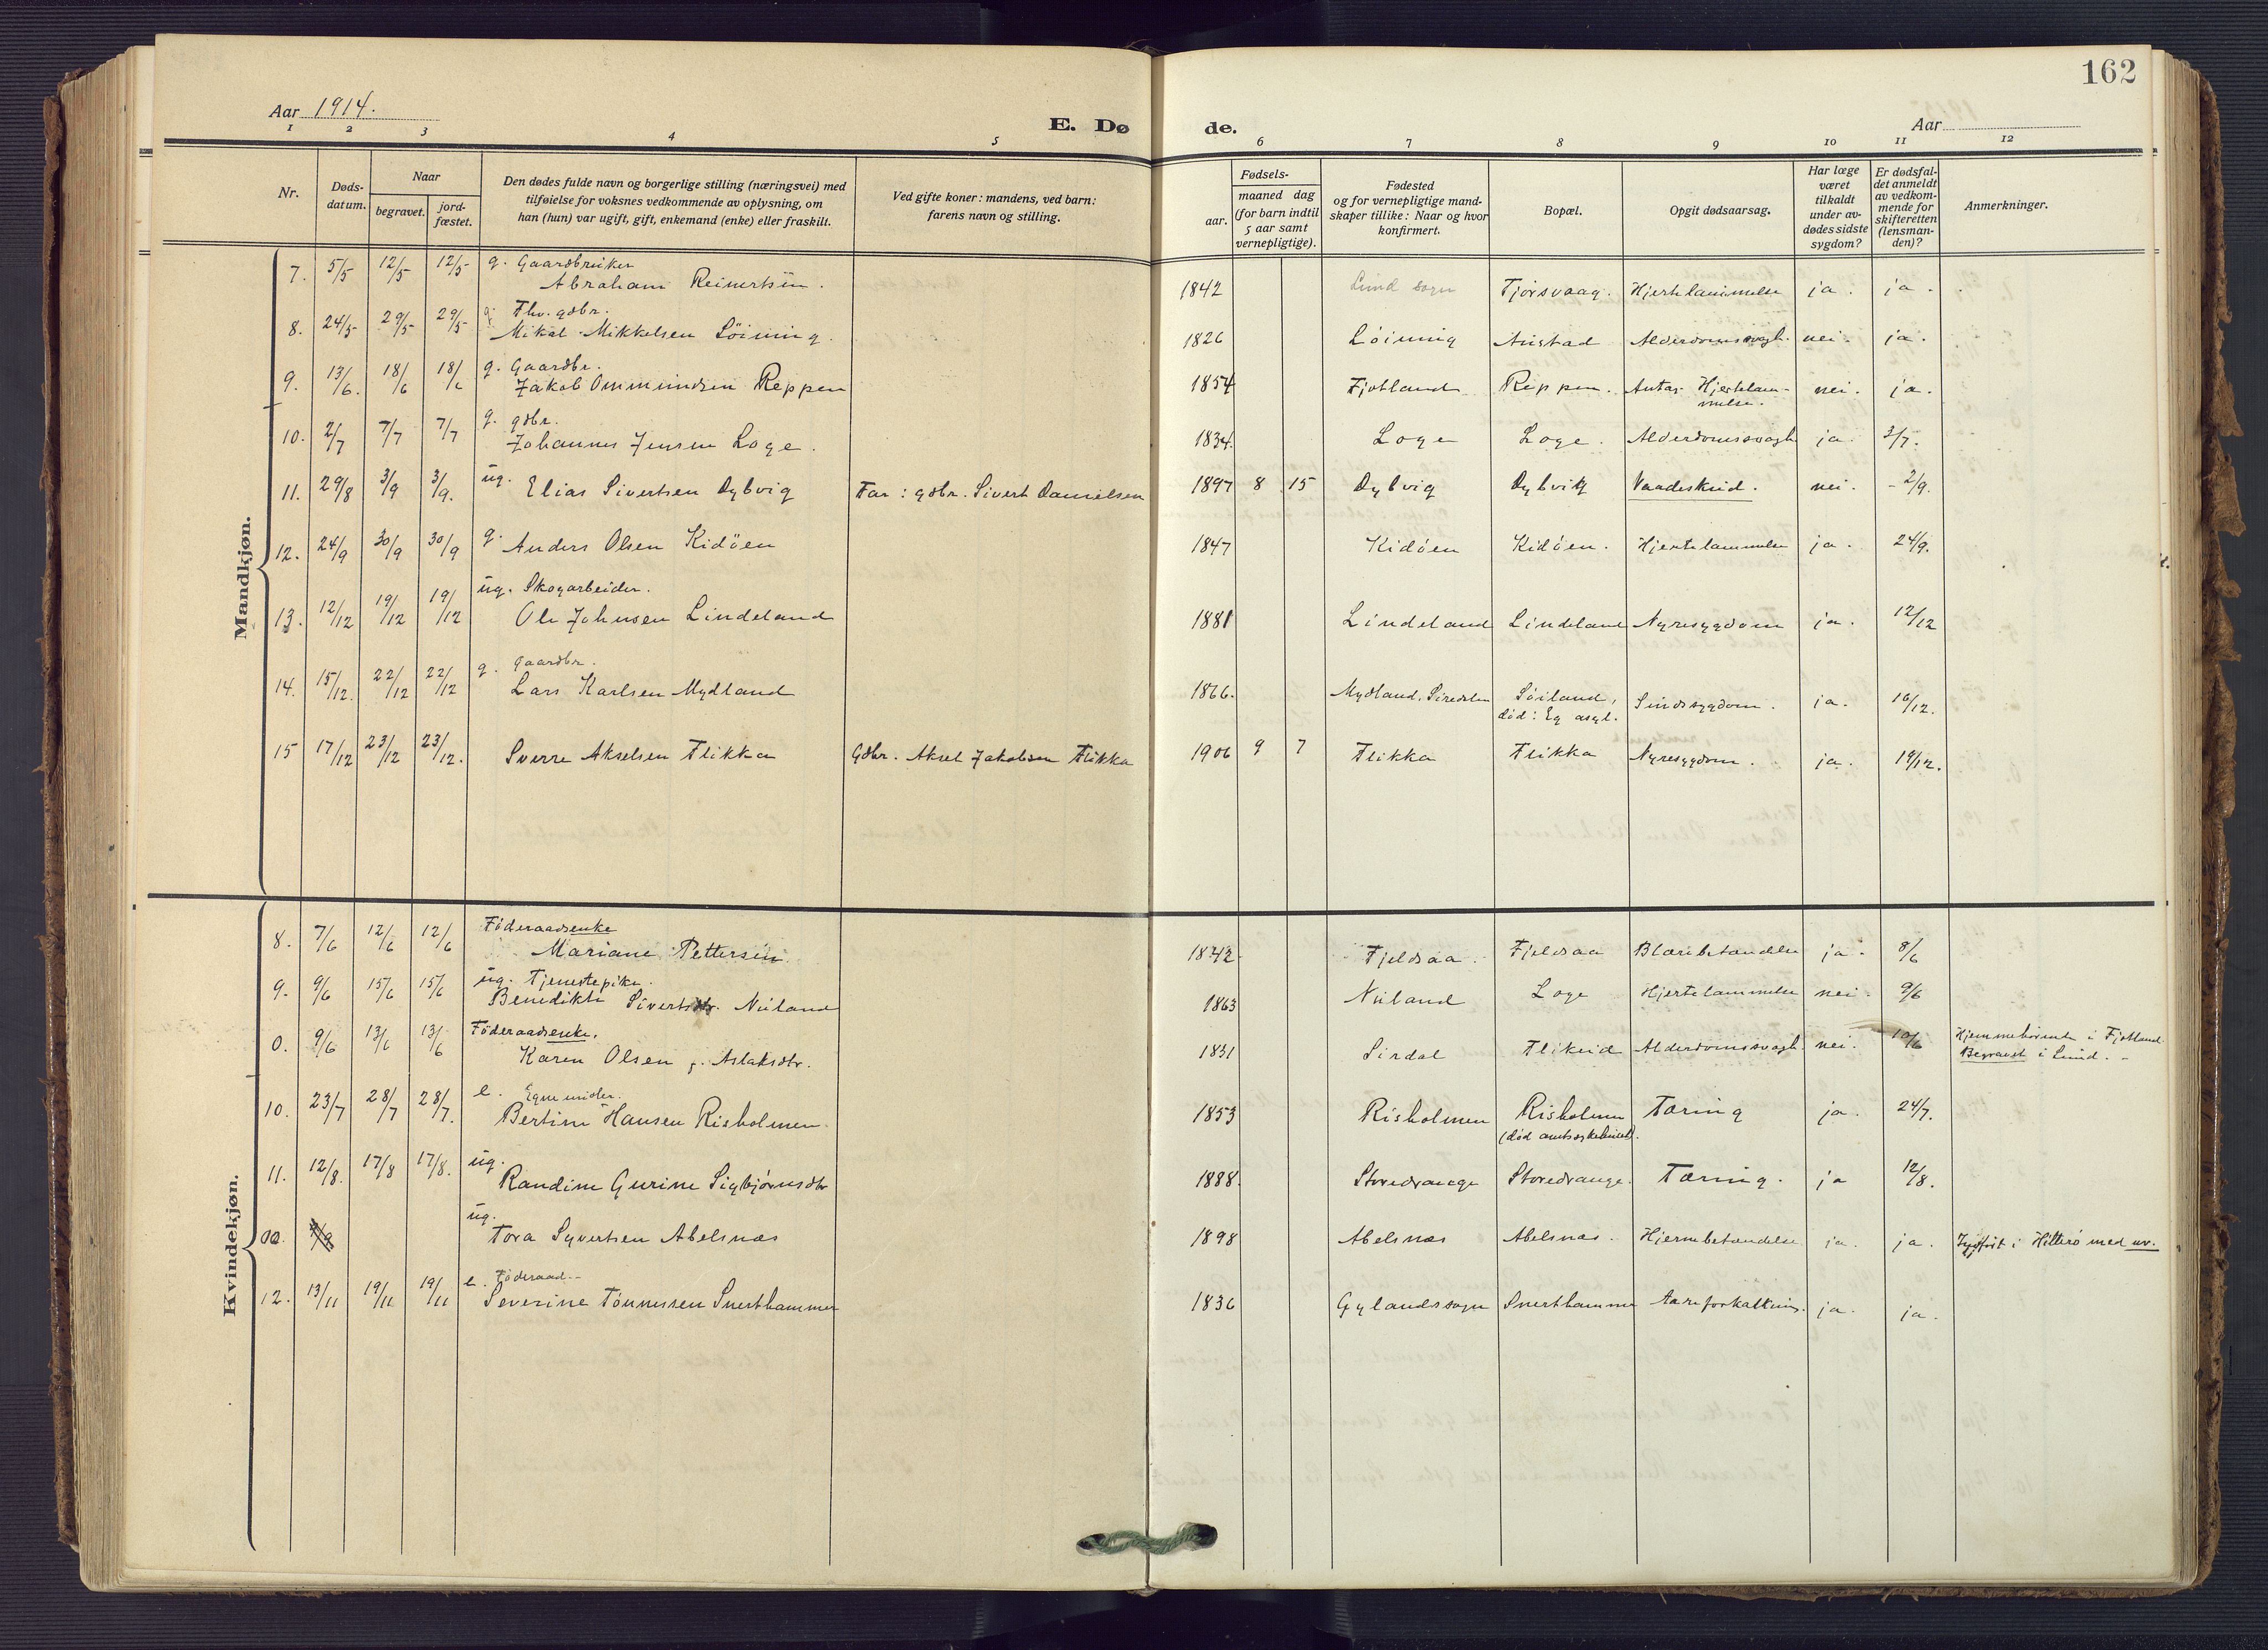 162
Aar 1914.
E. Dø
de.
Aar
1 2 3 4 5 6 7 8 9 10 11 12
Nr.
Døds-datum.
Naar
begravet.
jord-fæstet.
Den dødes fulde navn og borgerlige stilling (næringsvei) med
tilføielse for voksnes vedkommende av oplysning, om
han (hun) var ugift, gift, enkemand (enke) eller fraskilt.
Ved gifte koner: mandens, ved barn:
farens navn og stilling.
Fødsels-
aar.
maaned dag
(for barn indtil
5 aar samt
vernepligtige).
Fødested
og for vernepligtige mand-
skaper tillike: Naar og hvor
konfirmert.
Bopæl.
Opgit dødsaarsag.
Har læge
været
tilkaldt
under av-
dødes sidste
sygdom?
Er dødsfal-
det anmeldt
av vedkom-
mende for
skifteretten
(lensman-
den)?
Anmerkninger.
Mandkjøn.
g. Gaardbruker
7. 5/5 12/5 12/5 Abraham Reinertsen. 1842 Lund sogn Tjørsvaag. Hjertelammelse ja. ja.
g. Fhv. gdbr.
8. 24/5 29/5 29/5 Mikal Mikkelsen Löining. 1826 Löining Anstad Alderdomssvagh. nei. ja.
g. Gaardbr.
9. 13/6. 18/6 18/6 Jakob Ommundsen Reppen 1854 Fjotland Reppen. Antag. Hjertelam-
melse. nei. ja.
g. gdbr.
10. 2/7 7/7 7/7 Johannes Jensen Loge. 1834. Loge Loge. Alderdomssvagh ja 3/7.
11. 29/8 3/9 3/9. ug. Elias Sivertsen Dybvig Far: gdbr. Sivert Danielsen 1897 8 15 Dybvig Dybvik Vaadeskud. nei. 2/9.
12. 24/9 30/9 30/9 g. Anders Olsen Kidöen 1847 Kidöen Kidöen. Hjertelammelse ja. 24/9.
ug. Skogarbeider.
13. 12/12 19/12 19/12 Ole Johnsen Lindeland 1881 Lindeland Lindeland Nyresygdom ja. 12/12
g. Gaardbr.
14. 15/12. 22/12 22/12 Lars Karlsen Mydland 1866. Mydland. Siredalen Söiland,
död: Eg asyl. Sindssygdom. ja. 16/12.
15 17/12 23/12 23/12. Sverre Akselsen Flikka Gdbr. Aksel Jakobsen Flikka 1906 9 7 Flikka Flikka Nyresygdom. ja. 19/12.
Kvindekjøn.
Föderaadsenke
8. 7/6 12/6 12/6 Mariane Pettersen 1842 Fjeldsaa. Fjeldsaa Blærebetændelse ja. 8/6
ug. Tjenestepike.
9. 9/6 15/6 15/6 Benedikte Sivertsdtr. Nuland 1863 Nuland Loge Hjertelammelse nei. 9/6
Föderaadsenke.
0. 9/6 13/6 13/6 Karen Olsen f. Aslaksdtr. 1831 Sirdal Flikeid Alderdomssvagh. nei. 10/6 Hjemmehörende i Fjotland
Begravet i Lund.
e. Egne midler.
10. 23/7 28/7 28/7. Bertine Hansen Risholmen 1853 Risholmen Risholmen
(död amtssykehuset). Tæring ja. 24/7.
ug.
11. 12/8. 17/8 17/8. Randine Gurine Sigbjørnsdtr 1888. Storedrange Storedrange. Tæring. ja 12/8.
ug.
00. Tora Syvertsen Abelsnæs 1898 Abelsnæs Abelsnæs. Hjernebetændelse ja. ja. i Hitterö med nr.
e. Föderaad--
12. 13/11 19/11 19/11 Severine Tönnessen Snerthammer 1836 Gylandssogn Snerthammer Aareforkalkning. ja. ja.